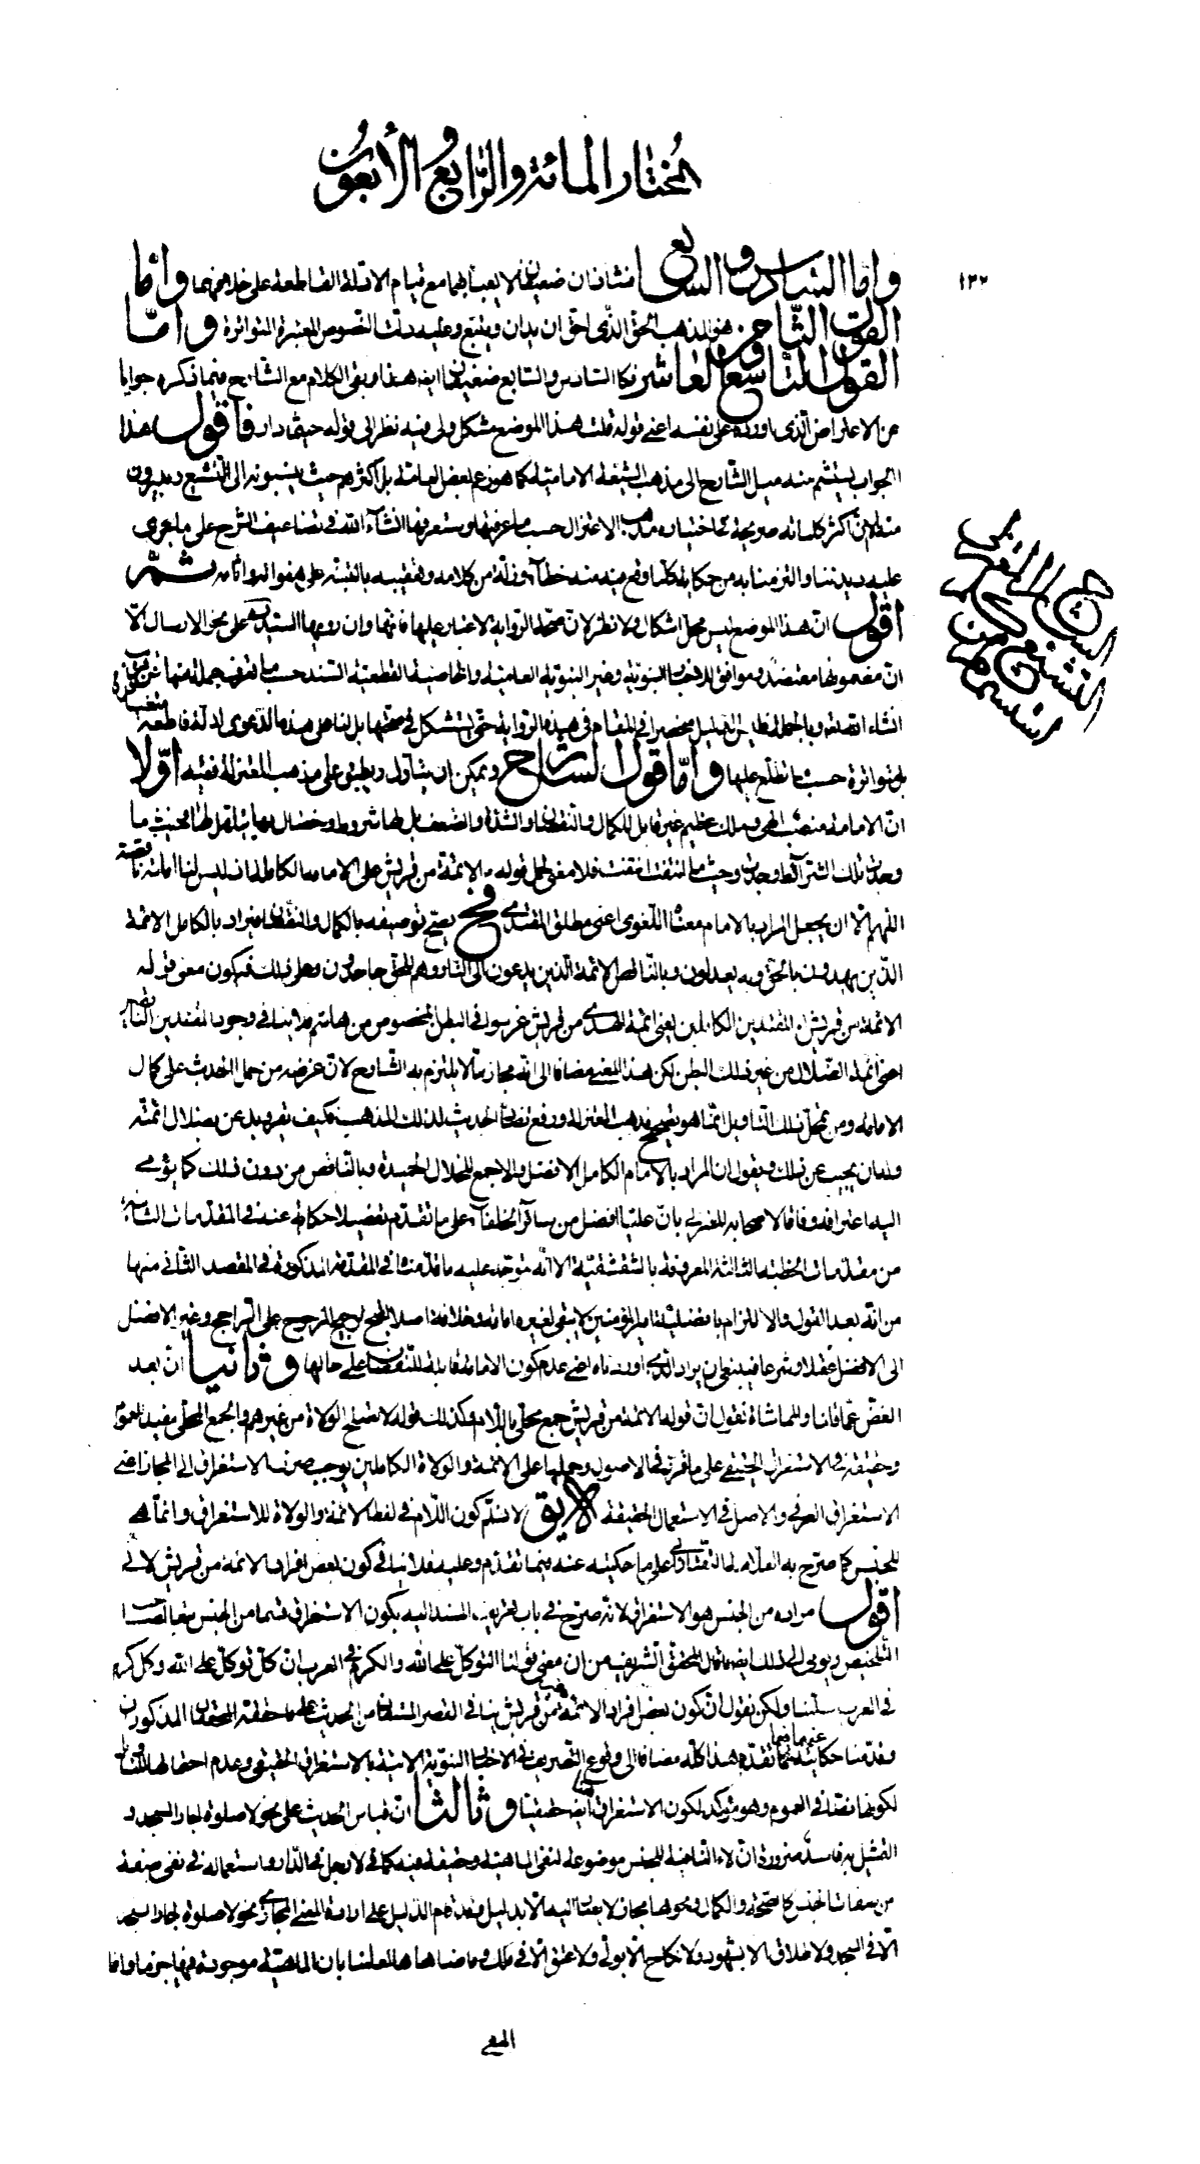 المختار المائة والرابع والأربعون
١٣٢
وامّا السّادس والسّابع فشاذّان ضعيفان لا يعبأ بهما مع قيام الادلّة القاطعة على خلافهما وامّا
القول الثّامن فهو المذهب الحقّ الّذى احقّ ان يدان ويتّبع وعليه دلّت النّصوص المعتبرة المتواترة وامّا
القول التّاسع والعاشر فكالسّادس والسّابع ضعيفان ايضا هذا وبقى الكلام مع الشّارح فيما ذكره جوابا
عن الاعتراض الّذى اورده على نفسه اعنى قوله قلت هذا الموضع مشكل ولى فيه نظر الى قوله حيثما دار فأقول هذا
الجواب يستشمّ منه ميل الشّارح الى مذهب الشّيعة الاماميّة كما هو زعم بعض العامّة بل اكثرهم حيث ينسبونه الى التّشيّع ويتبرّؤن
منه لكن اكثر كلماته صريحة فى اختياره مذهب الاعتزال حسب ما عرفتها وستعرفها انشاء اللّه فى تضاعيف الشّرح على ما جرى
عليه ديدننا والتزمنا به من حكاية كلّما وقع منه خطاء وزلّة من كلامه وتعقيبه بالتّنبيه على هفواته وآثامه ثمّ
أقول انّ هذا الموضع ليس محلّ اشكال ولا نظر لانّ صحّة الرّواية لا غبار عليها فانّها وان رويها السيّد ره على نحو الارسال الّا
انّ مضمونها معتضد وموافق للاخبار النّبويّة وغير النّبويّة العاميّة والخاصيّة القطعيّة السّند حسب ما تعرف جملة منها عن قريب
انشاء اللّه وبالجملة فليس الدّليل منحصرا فى المقام فى هذه الرّواية حتّى يستشكل فى صحّتها بل لنا على هذه الدّعوى ادلّة قاطعة
متواترة حسب ما تطّلع عليها وامّا قول الشّارح ويمكن ان يتأوّل ويطبّق على مذهب المعتزلة ففيه اوّلا
انّ الامامة منصب الهى وملك عظيم غير قابل للكمال والنّقصان والشدّة والضّعف بل لها شروط وخصال بها يتأهّل لها فحيث ما
وجدت تلك الشّرائط وجدت وحيث ما انتفت انتفت فلا معنى لحمل قوله الائمّة من قريش على الامامة الكاملة اذ ليس لنا امامة ناقصة
اللّهمّ الّا ان يجعل المراد بالامام معناه اللّغوى اعنى مطلق المقتدى فح يصحّ توصيفه بالكمال والنّقصان فيراد بالكامل الائمّة
الّذين يهدون بالحقّ وبه يعدلون وبالنّاقص الائمّة الّذين يدعون الى النّار وهم للحقّ جاحدون وعلى ذلك فيكون معنى قوله
الائمّة من قريش انّ المقتدين الكاملين يعنى ائمّة الهدى من قريش غرسوا فى البطن المخصوص من هاشم ولا ينافى وجود المقتدين النّاقصين
اعنى ائمّة الضّلال من غير ذلك البطن لكن هذا المعنى مضافا الى انّه مجاز ممّا لا يلتزم به الشّارح لانّ غرضه من حمل الحديث على كمال
الامامة ومن تمحّل ذلك التّأويل انّما هو تصحيح مذهب المعتزلة ورفع تضادّ الحديث لذلك المذهب فكيف يعرب عن ضلال ائمّته
وله ان يجيب عن ذلك ويقول ان المراد بالامام الكامل الافضل والاجمع للخلال الحميدة وبالنّاقص من دون ذلك كما يؤمى
اليه اعترافه وفاقا لاصحابه المعتزلى بانّ عليّا افضل من سائر الخلفاء على ما تقدّم تفصيلا حكايته عنه فى المقدّمات الثانية
من مقدّمات الخطبة الثالثة المعروفة بالشقشقيّة الا انّه يتوجّه عليه ما قدّمنا فى المقدّمة المذكورة فى المقصد الثّانى منها
من انّه بعد القول والالتزام بافضليّة امير المؤمنين لا يبقى لغيره امامة وخلافة اصلا لقبح ترجيح المرجوح على الرّاجح وغير الافضل
الى الافضل عقلا وشرعا فينبغى ان يراد الّذى اوردناه اعنى عدم كون الامامة قابلة للنّقصان على حالها وثانيا انّ بعد
الغضّ عمّا قلنا والمماشاة نقول انّ قوله الائمّة من قريش جمع محلّى باللّام وكذلك قوله لا تصلح الولاة من غيرهم والجمع المحلّى مفيد للعموم
وحقيقة فى الاستغراق الحقيقى على ما قرّر فى الاصول وحملها على الائمّة والولاة الكاملين يوجب صرف الاستغراق الى المجاز اعنى
الاستغراق العرفى والاصل فى الاستعمال الحقيقة لا يق لا نسلّم كون اللّام فى لفظ الائمّة والولاة للاستغراق وانّما هى
للجنس كما صرّح به العلّامة التفتازانى على ما حكيته عنه فيما تقدّم وعليه فلا ينافى كون بعض افراد الائمّة من قريش لانّى
أقول مراده من الجنس هو الاستغراق لانّه صرّح فى باب تعريف المسند اليه بكون الاستغراق قسما من الجنس تبعا لصاحب
التّلخيص ويومى الى ذلك ايضا ما قال المحقّق الشّريف من ان معنى قولنا التوكّل على اللّه والكرم فى العرب ان كلّ توكّل على اللّه وكلّ كرم
فى العرب سلّمنا ولكن نقول انّ كون بعض افراد الائمّة من غير قريش ينافى القصر المستفاد من الحديث على ما حقّقه المحقّقان المذكوران
وقدّمنا حكايته عنهما فيما تقدّم هذا كلّه مضافا الى وقوع التّصريح فى الاخبار النبويّة الآتية بالاستغراق الحقيقى وعدم احتمالها للتأويل
لكونها نصّا فى العموم وهو مؤكّد لكون الاستغراق هنا ايضا حقيقيّا وثالثا انّ قياس الحديث على نحو لا صلوة لجار المسجد و
التمثيل به فاسد ضرورة انّ لاء النّافية للجنس موضوعة لنفى الماهيّة وحقيقة فيه كما فى لا رجل فى الدّار واستعماله فى نفى صفة
من صفات الجنس كالصحّة والكمال ونحوها مجاز لا يصار اليه الا بدليل وقد قام الدّليل على ارادة المعنى المجازى نحو لا صلوة لجار المسجد
الّا فى المسجد ولا طلاق الا بشهود ولا نكاح الّا بولىّ ولا عتق الّا فى ملك وما ضاهاها لعلمنا بانّ الماهيّة موجودة فيها جزما وامّا
المعنى